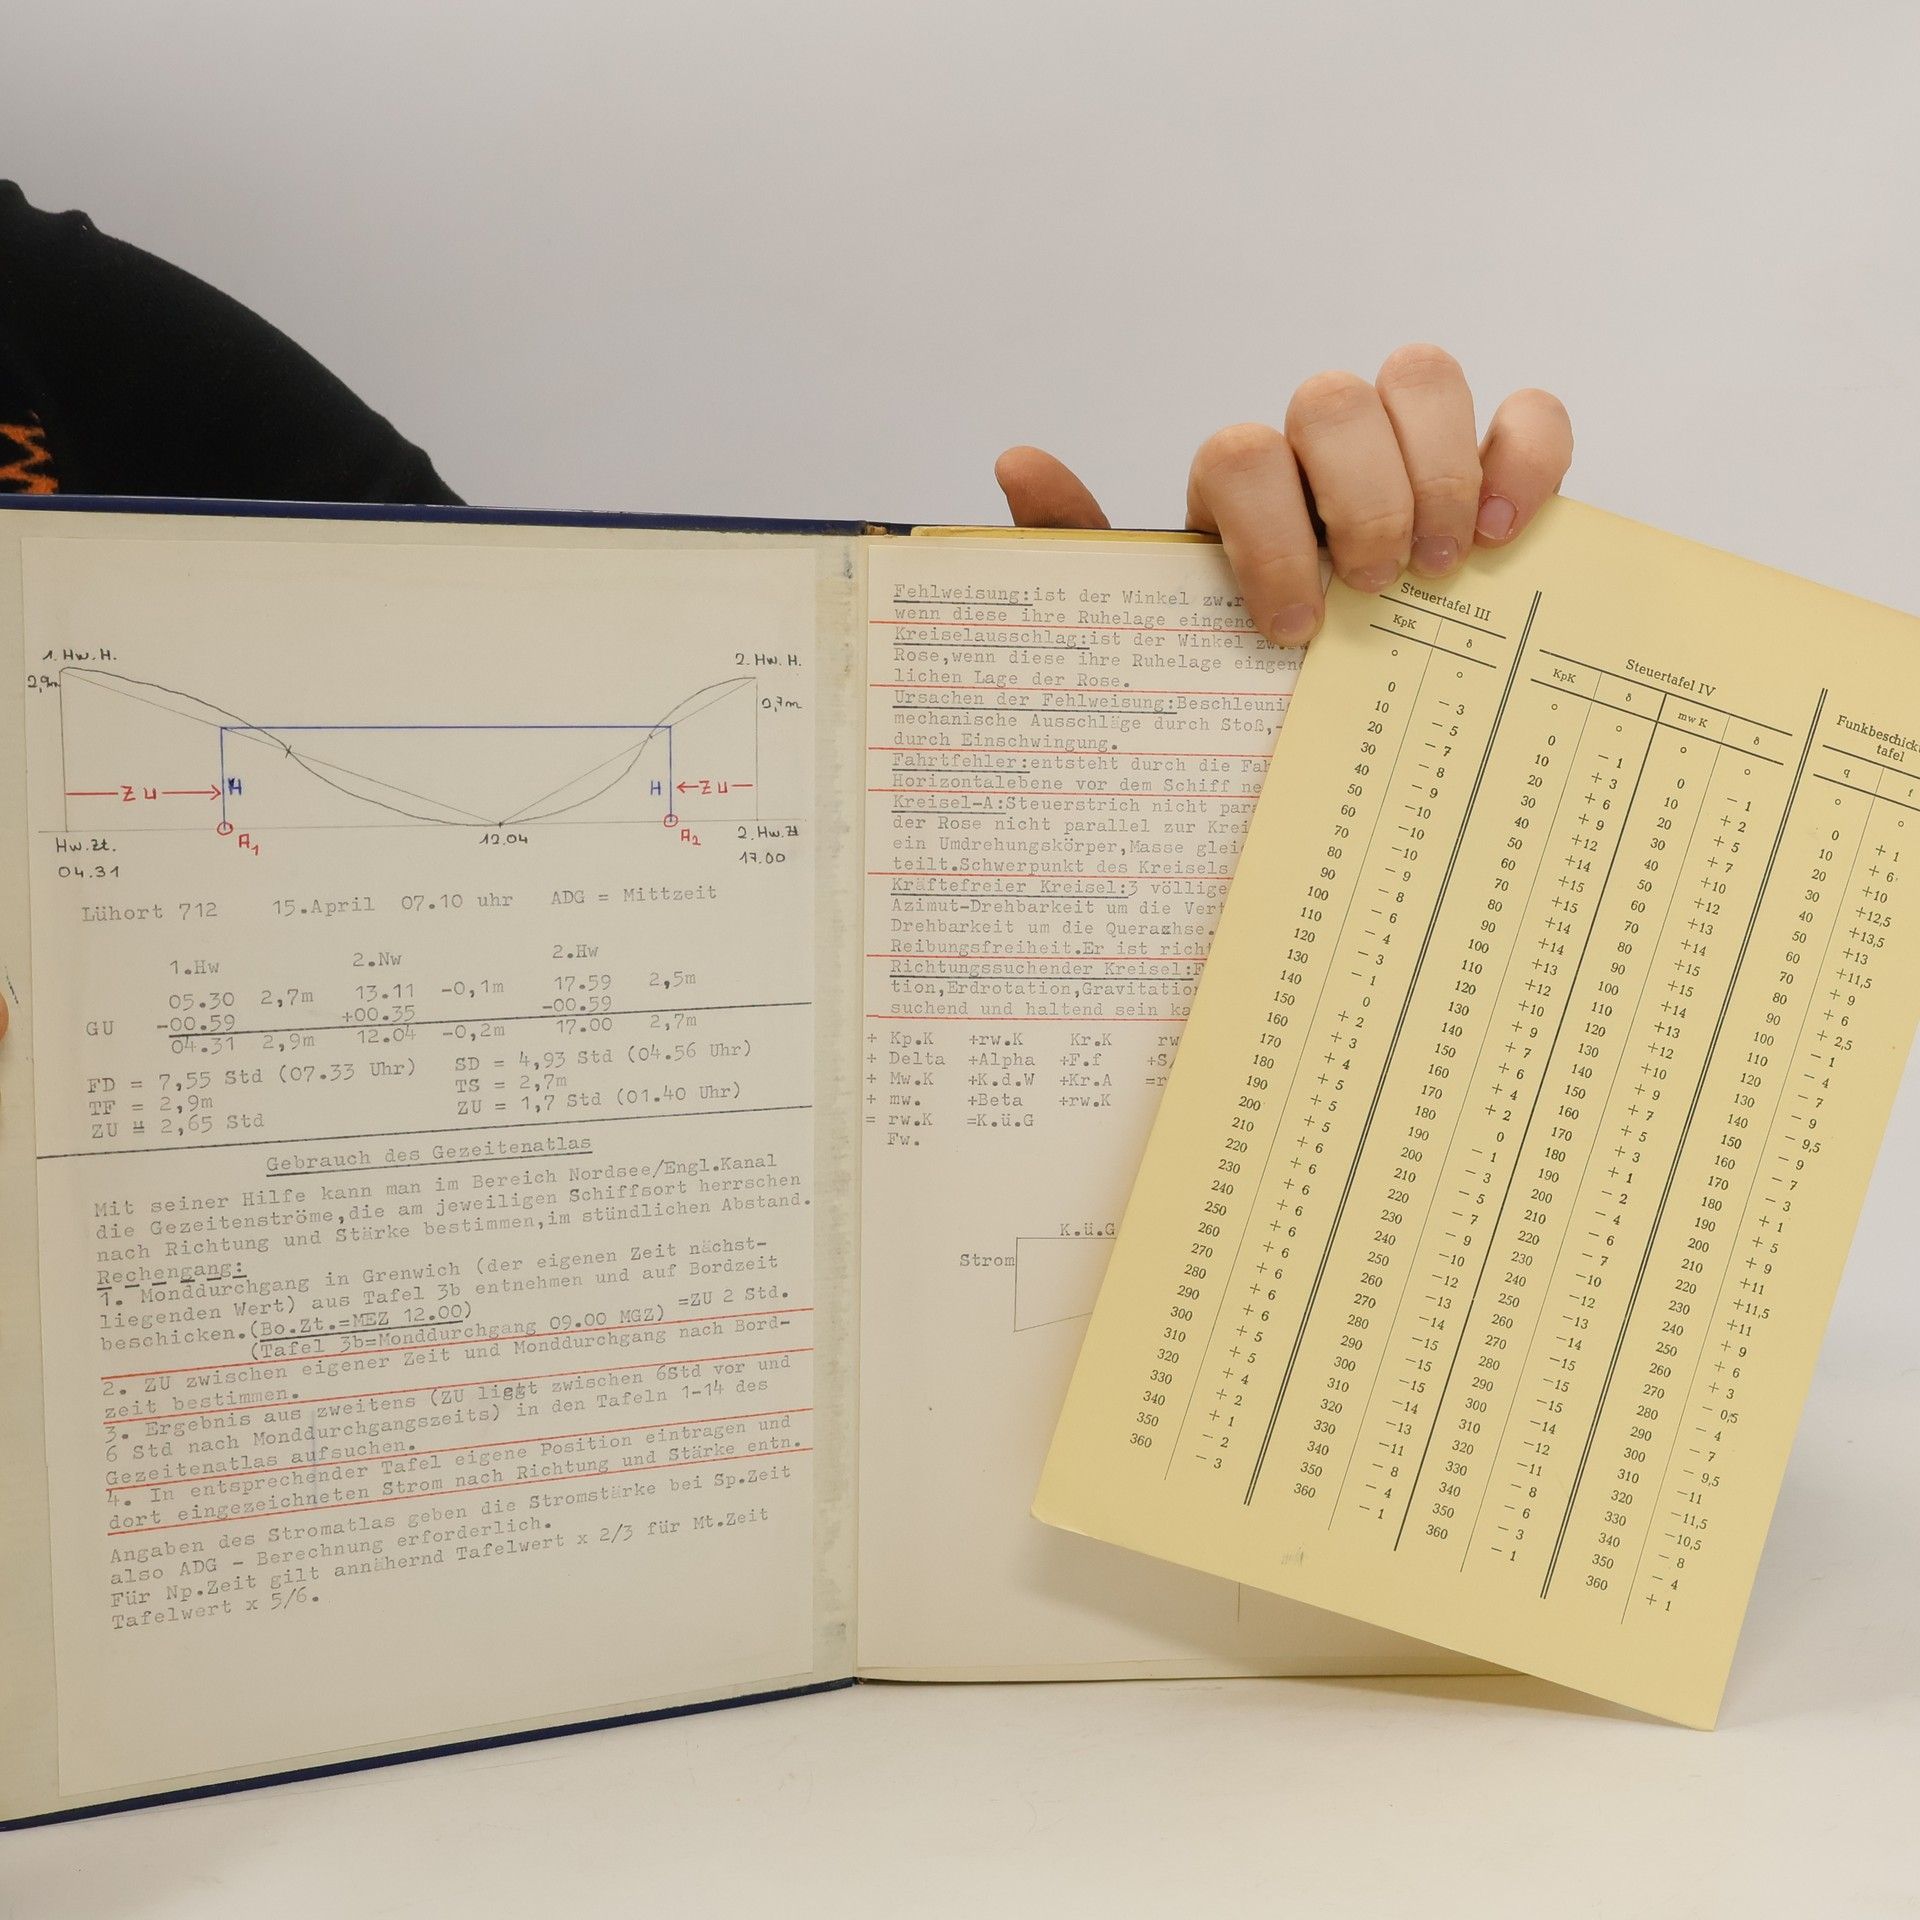 1. Hw. H.
2,9m
2. Hw. H.
0,7m
Z U
H
H
Z U
A1
A2
12.04
Hw.Zt.
04.31
2. Hw.Zt
17.00
Lühort 712 15.April 07.10 uhr ADG = Mittzeit
1.Hw 2.Nw 2.Hw
05.30 2,7m 13.11 -0,1m 17.59 2,5m
GU -00.59 +00.35 -00.59
04.31 2,9m 12.04 -0,2m 17.00 2,7m
FD = 7,55 Std (07.33 Uhr) SD = 4,93 Std (04.56 Uhr)
TF = 2,9m TS = 2,7m
ZU = 2,65 Std ZU = 1,7 Std (01.40 Uhr)
Gebrauch des Gezeitenatlas
Mit seiner Hilfe kann man im Bereich Nordsee/Engl.Kanal
die Gezeitenströme,die am jeweiligen Schiffsort herrschen
nach Richtung und Stärke bestimmen,im stündlichen Abstand.
Rechengang:
1. Monddurchgang in Grenwich (der eigenen Zeit nächst-
liegenden Wert) aus Tafel 3b entnehmen und auf Bordzeit
beschicken.(Bo.Zt.=MEZ 12.00)
(Tafel 3b=Monddurchgang 09.00 MGZ) =ZU 2 Std.
2. ZU zwischen eigener Zeit und Monddurchgang nach Bord-
zeit bestimmen.
3. Ergebnis aus zweitens (ZU liegt zwischen 6Std vor und
6 Std nach Monddurchgangszeits) in den Tafeln 1-14 des
Gezeitenatlas aufsuchen.
4. In entsprechender Tafel eigene Position eintragen und
dort eingezeichneten Strom nach Richtung und Stärke entn.
Angaben des Stromatlas geben die Stromstärke bei Sp.Zeit
also ADG - Berechnung erforderlich.
Für Np.Zeit gilt annähernd Tafelwert x 2/3 für Mt.Zeit
Tafelwert x 5/6.
Fehlweisung:ist der Winkel zw.r
wenn diese ihre Ruhelage eingeno
Kreiselausschlag:ist der Winkel zw.rw
Rose,wenn diese ihre Ruhelage eingen
lichen Lage der Rose.
Ursachen der Fehlweisung:Beschleuni
mechanische Ausschläge durch Stoß,-
durch Einschwingung.
Fahrtfehler:entsteht durch die Fah
Horizontalebene vor dem Schiff ne
Kreisel-A:Steuerstrich nicht para
der Rose nicht parallel zur Krei
ein Umdrehungskörper,Masse gleic
teilt.Schwerpunkt des Kreisels
Kräftefreier Kreisel:3 völlige
Azimut-Drehbarkeit um die Vert
Drehbarkeit um die Querazhse.
Reibungsfreiheit.Er ist rich
Richtungssuchender Kreisel:F
tion,Erdrotation,Gravitation
suchend und haltend sein ka
+ Kp.K +rw.K Kr.K rw
+ Delta +Alpha +F.f +S/
+ Mw.K +K.d.W +Kr.A =r
+ mw. +Beta +rw.K
= rw.K =K.ü.G
Fw.
K.ü.G
Strom
Steuertafel III
KpK δ
° °
0 - 3
10 - 5
20 - 7
30 - 8
40 - 9
50 -10
60 -10
70 -10
80 - 9
90 - 8
100 - 6
110 - 4
120 - 3
130 - 1
140 0
150 + 2
160 + 3
170 + 4
180 + 5
190 + 5
200 + 5
210 + 6
220 + 6
230 + 6
240 + 6
250 + 6
260 + 6
270 + 6
280 + 6
290 + 6
300 + 5
310 + 5
320 + 4
330 + 2
340 + 1
350 - 2
360 - 3
Steuertafel IV
KpK δ mw K δ
° ° ° °
0 - 1 0 - 1
10 + 3 10 + 2
20 + 6 20 + 5
30 + 9 30 + 7
40 +12 40 +10
50 +14 50 +12
60 +15 60 +13
70 +15 70 +14
80 +14 80 +15
90 +14 90 +15
100 +13 100 +14
110 +12 110 +13
120 +10 120 +12
130 + 9 130 +10
140 + 7 140 + 9
150 + 6 150 + 7
160 + 4 160 + 5
170 + 2 170 + 3
180 0 180 + 1
190 - 1 190 - 2
200 - 3 200 - 4
210 - 5 210 - 6
220 - 7 220 - 7
230 - 9 230 -10
240 -10 240 -12
250 -12 250 -13
260 -13 260 -14
270 -14 270 -15
280 -15 280 -15
290 -15 290 -15
300 -15 300 -14
310 -14 310 -12
320 -13 320 -11
330 -11 330 - 8
340 - 8 340 - 6
350 - 4 350 - 3
360 - 1 360 - 1
Funkbeschick
tafel
q f
° °
0 + 1
10 + 6
20 +10
30 +12,5
40 +13,5
50 +13
60 +11,5
70 + 9
80 + 6
90 + 2,5
100 - 1
110 - 4
120 - 7
130 - 9
140 - 9,5
150 - 9
160 - 7
170 - 3
180 + 1
190 + 5
200 + 9
210 +11
220 +11,5
230 +11
240 + 9
250 + 6
260 + 3
270 - 0,5
280 - 4
290 - 7
300 - 9,5
310 -11
320 -11,5
330 -10,5
340 - 8
350 - 4
360 + 1